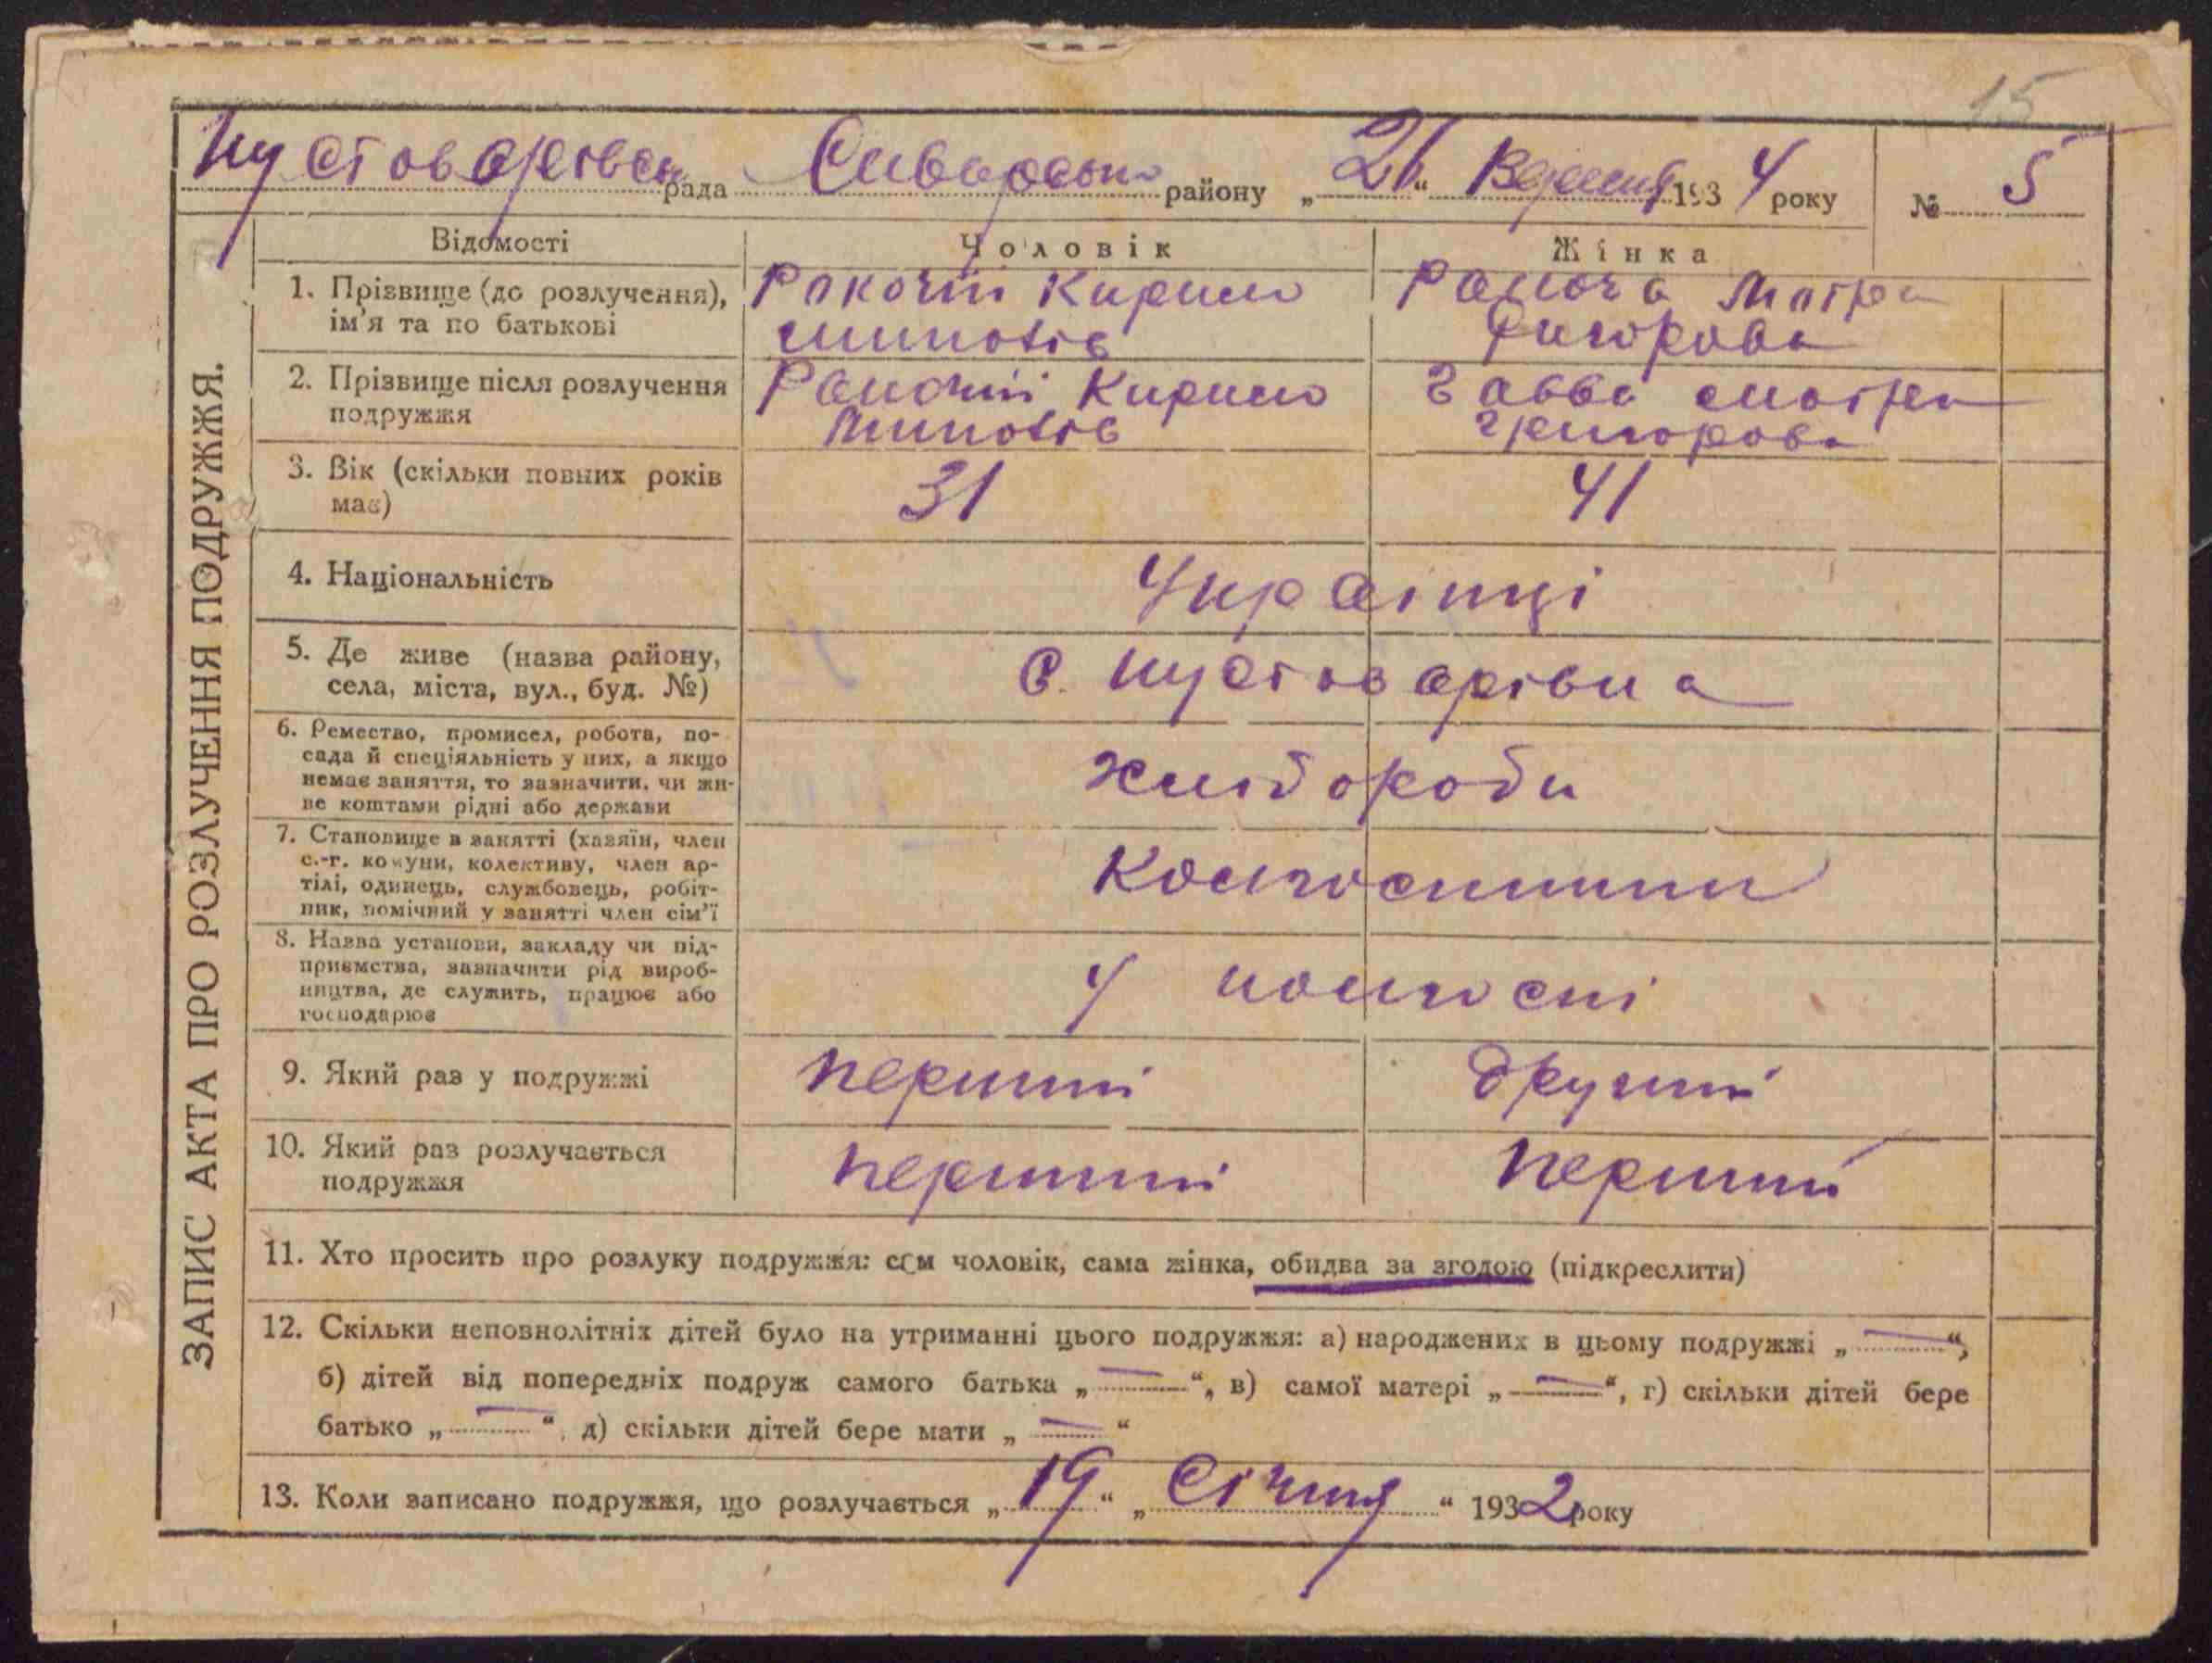 15
Пустоварівська рада Сквирського району „26“ Вересня 1934 року № 5
ЗАПИС АКТА ПРО РОЗЛУЧЕННЯ ПОДРУЖЖЯ.
Відомості Чоловік Жінка
1. Прізвище (до розлучення), ім'я та по батькові
Кирило
2. Прізвище після розлучення подружжя
Кирило
Гавва Мотря
Григорова
3. Вік (скільки повних років має) 31 41
4. Національність Українці
5. Де живе (назва району, села, міста, вул., буд. №) с. Пустоварівка
6. Ремество, промисел, робота, по-
сада й спеціяльність у них, а якщо
немає заняття, то зазначити, чи жи-
ве коштами рідні або держави
хлібороби
7. Становище в занятті (хазяїн, член
с.-г. комуни, колективу, член ар-
тілі, одинець, службовець, робіт-
ник, помічний у занятті член сім'ї
Колгоспники
8. Назва установи, закладу чи під-
приємства, зазначити рід вироб-
ництва, де служить, працює або
господарює
У колгоспі
9. Який раз у подружжі перший другий
10. Який раз розлучається подружжя перший перший
11. Хто просить про розлуку подружжя: сам чоловік, сама жінка, обидва за згодою (підкреслити)
12. Скільки неповнолітніх дітей було на утриманні цього подружжя: а) народжених в цьому подружжі „—“,
б) дітей від попередніх подруж самого батька „—“, в) самої матері „—“, г) скільки дітей бере
батько „—“, д) скільки дітей бере мати „—“
13. Коли записано подружжя, що розлучається „19“ „Січня“ 1932 року